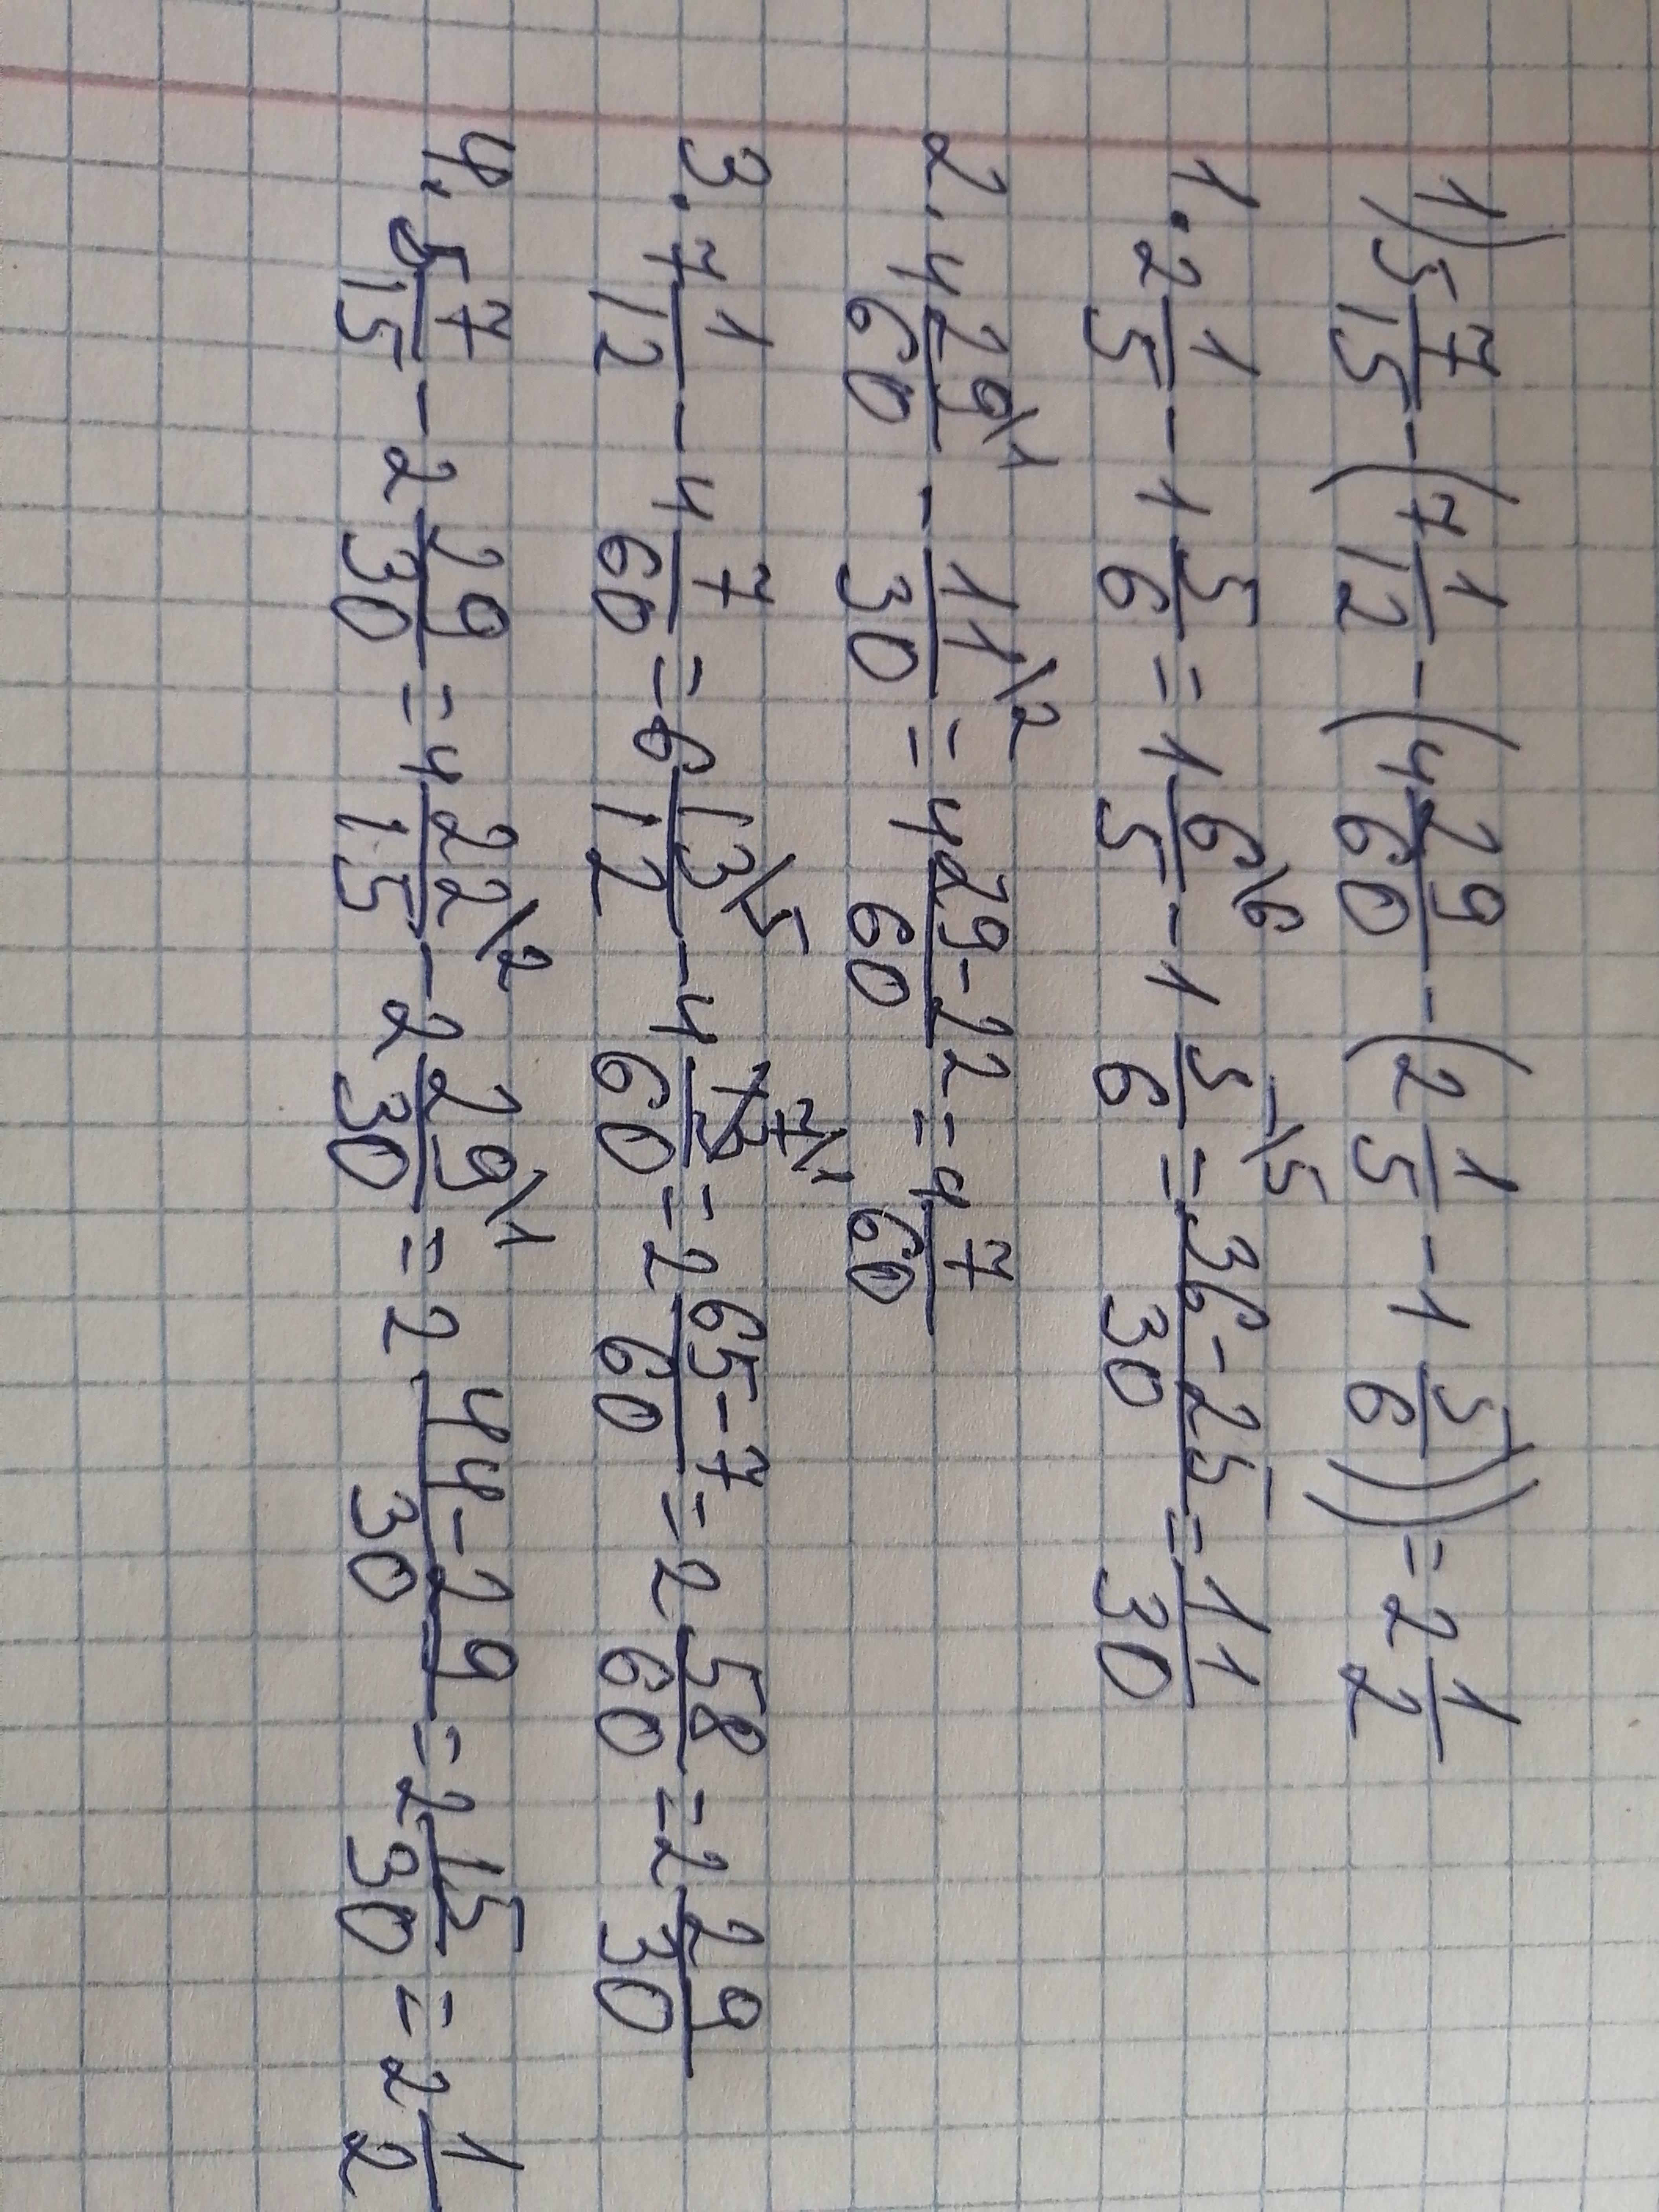 1) 5 7/15 - (7 1/12 - (4 29/60 - (2 1/5 - 1 5/6))) = 2 1/2
1. 2 1/5 - 1 5/6 = 1 6\6/5 - 1 5\5/6 = 36-25/30 = 11/30
2. 4 29\1/60 - 11\2/30 = 4 29-22/60 = 4 7/60
3. 7 1/12 - 4 7/60 = 6 13\5/12 - 4 7\1/60 = 2 65-7/60 = 2 58/60 = 2 29/30
4. 5 7/15 - 2 29/30 = 4 22\2/15 - 2 29\1/30 = 2 44-29/30 = 2 15/30 = 2 1/2